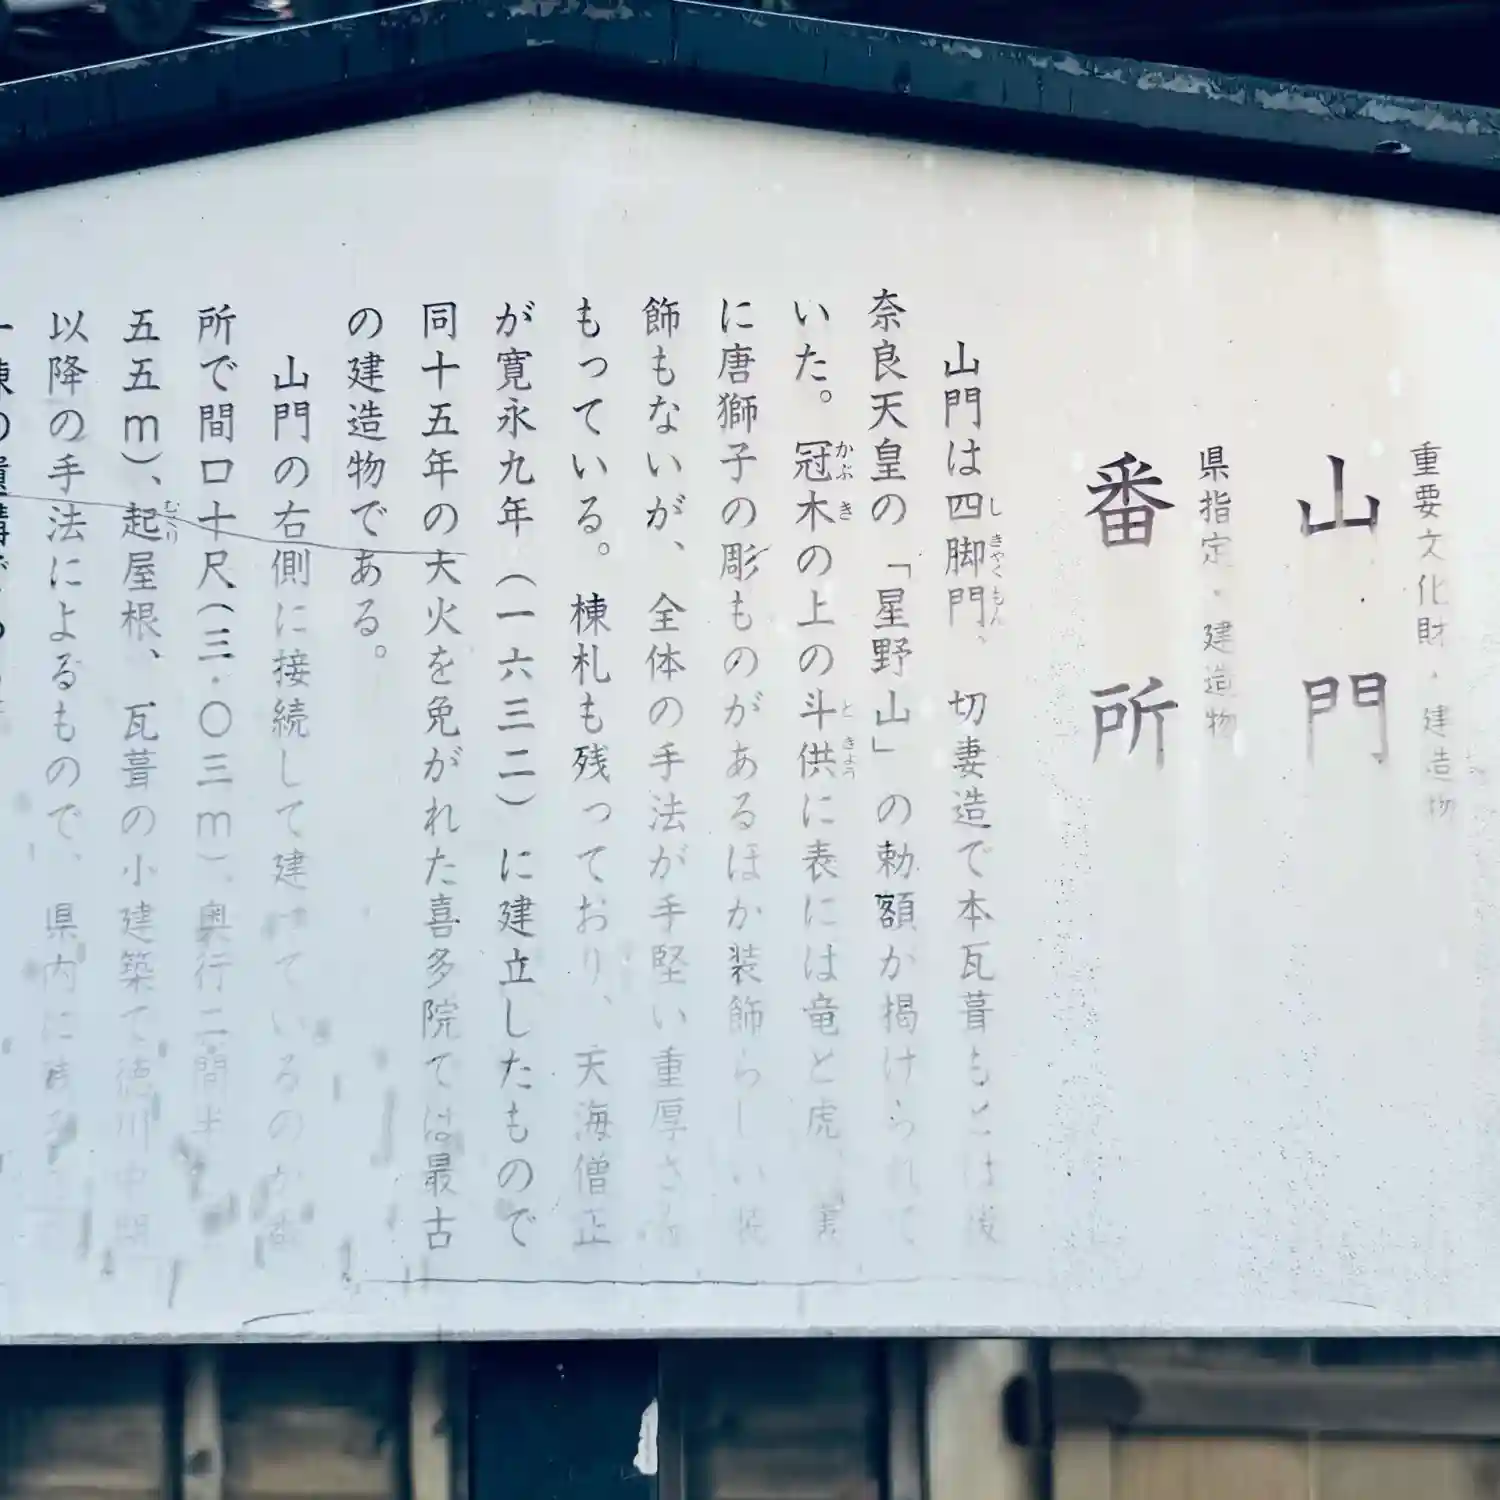 重要文化財・建造物
山門
県指定・建造物
番所
山門は四脚門、切妻造で本瓦葺もとは後
しきゃくもん
奈良天皇の「星野山」の勅額が掲げられて
いた。冠木の上の斗供に表には竜と虎、裏
かぶき
ときょう
に唐獅子の彫ものがあるほか装飾らしい装
飾もないが、全体の手法が手堅い重厚さを
もっている。棟札も残っており、天海僧正
が寛永九年（一六三二）に建立したもので
同十五年の大火を免がれた喜多院では最古
の建造物である。
山門の右側に接続して建っているのが
所で間口十尺（三・〇三m）、奥行二間半
五五m）、起屋根、瓦葺の小建築で徳川中期
むくり
以降の手法によるもので、県内に